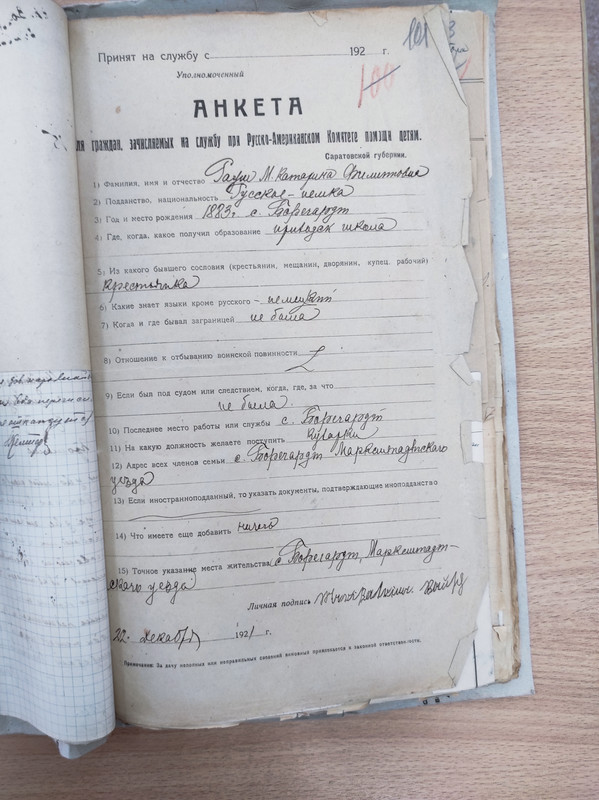 Принят на службу с 192 г.
101
Уполномоченный
100
АНКЕТА
для граждан, зачисляемых на службу при Русско-Американском Комитете помощи детям.
Саратовской губернии.
1) Фамилия, имя и отчество Гауш М. Катарина Филиповна
2) Подданство, национальность Русское - немка
3) Год и место рождения 1883 г. с. Борегардт
4) Где, когда, какое получил образование приходск школа
5) Из какого бывшего сословия (крестьянин, мещанин, дворянин, купец, рабочий)
крестьянка
6) Какие знает языки кроме русского - немецкий
7) Когда и где бывал заграницей не была
8) Отношение к отбыванию воинской повинности
9) Если был под судом или следствием, когда, где, за что
не была
10) Последнее место работы или службы с. Борегардт
11) На какую должность желаете поступить кухарки
12) Адрес всех членов семьи с. Борегардт Марксштадтского
уезда
13) Если иностранноподданный, то указать документы, подтверждающие иноподданство
14) Что имеете еще добавить ничего
15) Точное указание места жительства с. Борегардт, Марксштадт-
ского уезда
Личная подпись
22 декабря 1921 г.
Примечание: За дачу неполных или неправильных сведений виновные привлекаются к законной ответственности.